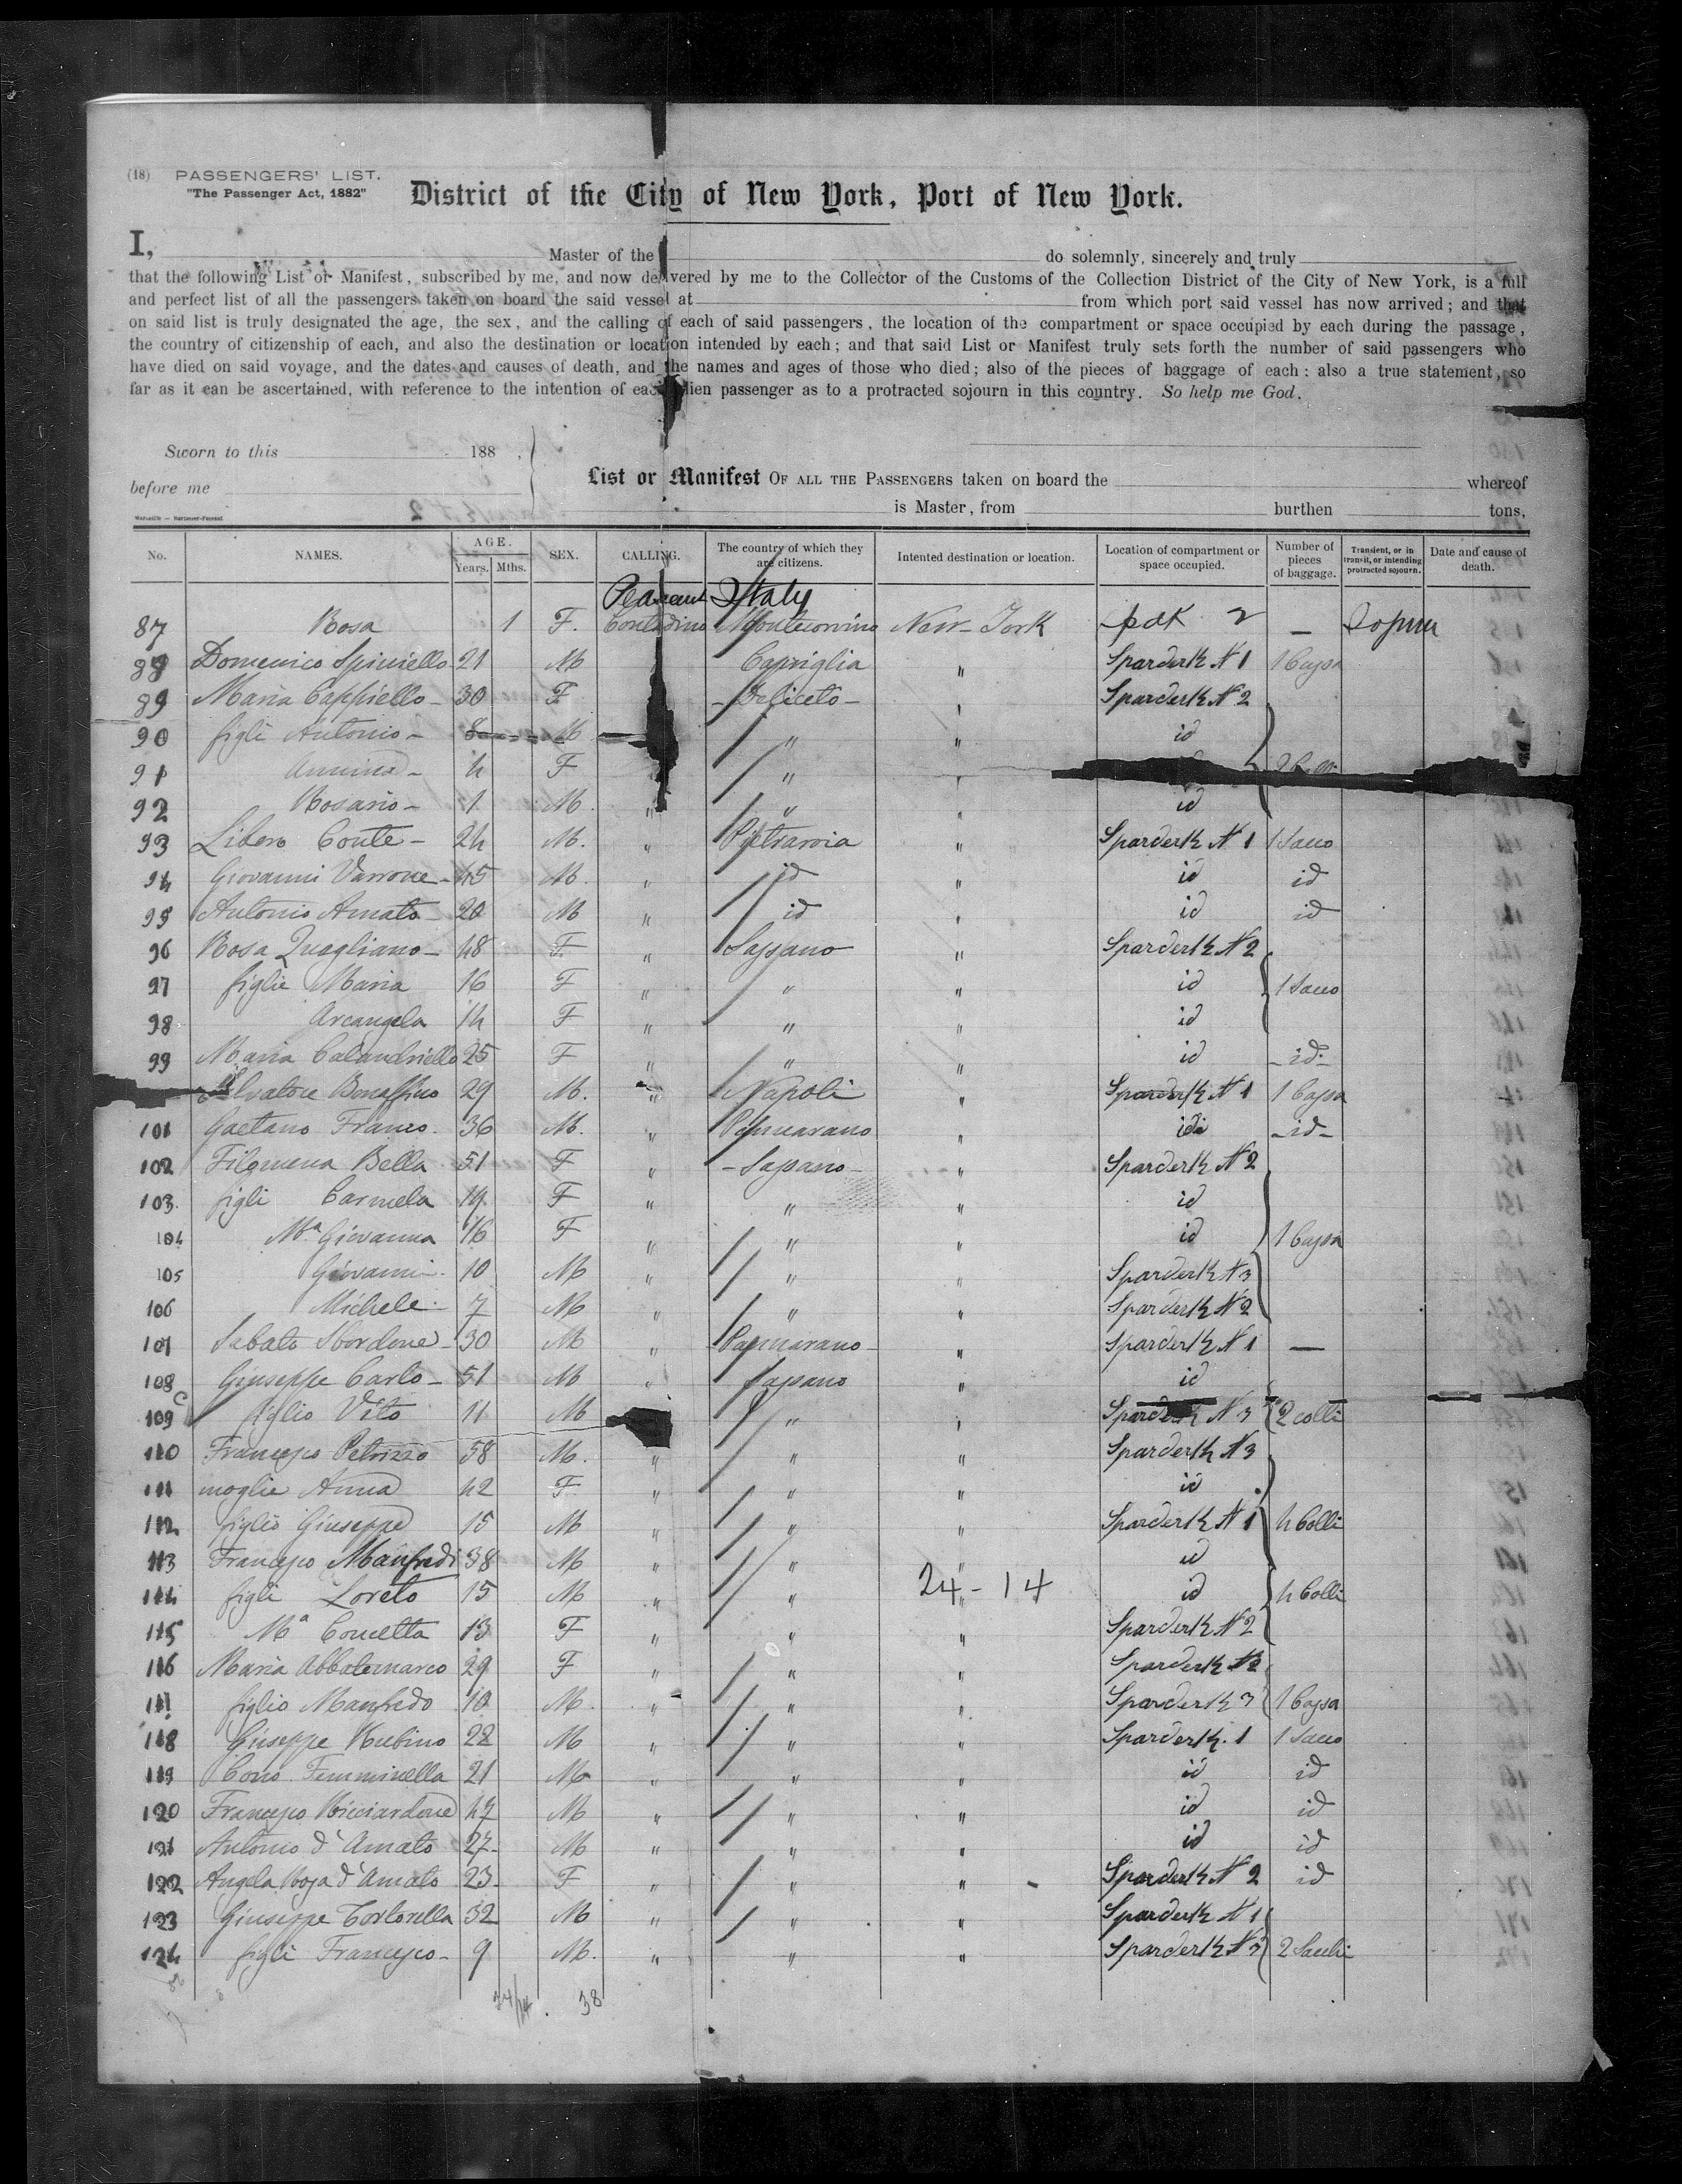 (18) PASSENGERS' LIST.
"The Passenger Act, 1882"
District of the City of New York, Port of New York.
I, Master of the do solemnly, sincerely and truly
that the following List or Manifest, subscribed by me, and now delivered by me to the Collector of the Customs of the Collection District of the City of New York, is a full
and perfect list of all the passengers taken on board the said vessel at from which port said vessel has now arrived; and that
on said list is truly designated the age, the sex, and the calling of each of said passengers, the location of the compartment or space occupied by each during the passage,
the country of citizenship of each, and also the destination or location intended by each; and that said List or Manifest truly sets forth the number of said passengers who
have died on said voyage, and the dates and causes of death, and the names and ages of those who died; also of the pieces of baggage of each: also a true statement, so
far as it can be ascertained, with reference to the intention of each alien passenger as to a protracted sojourn in this country. So help me God.
Sworn to this 188 ,
before me
List or Manifest OF ALL THE PASSENGERS taken on board the whereof
is Master, from burthen tons,
No. NAMES. AGE. Years. Mths. SEX. CALLING. The country of which they are citizens. Intented destination or location. Location of compartment or space occupied. Number of pieces of baggage. Transient, or in transit, or intending protracted sojourn. Date and cause of death.
Peasant Italy
87 Rosa 1 F. Contadino Montecorvino New-York pdk 2 —
88 Domenico Spiniello 21 M Capriglia " Sparderk N 1 1 Cassa
89 Maria Cappiello - 30 F - Deliceto - " Sparderk N 2
90 figli Antonio - 8 M " " id
91 Annina - 4 F " "
92 Rosario - 1 M. " " " id
93 Libero Conte - 24 M. " Pietraroia " Sparderk N 1 1 Sacco
94 Giovanni Varrone - 45 M. " id " id id
95 Antonio Amato - 20 M " id " id id
96 Rosa Quagliano - 48 F " Sassano " Sparderk N 2
97 figlie Maria 16 F " " " id 1 Sacco
98 Arcangela 14 F " " " id
99 Maria Calandriello 25 F " " " id - id -
Salvatore 29 M. " Napoli " Sparderk N 1 1 Cassa
101 Gaetano Franco. 36 M. " Pannarano " id - id -
102 Filomena Bella 51 F " - Sassano - " Sparderk N 2
103. figli Carmela 19. F " " " id
104 Ma Giovanna 16 F " " " id 1 Cassa
105 Giovanni - 10 M " " " Sparderk N 3
106 Michele - 7 M " " " Sparderk N 2
107 Sabato Sbordone - 30 M " Pannarano - " Sparderk N 1 —
108 Giuseppe Carlo - 51 M " Sassano " id
109 figlio Vito 11 M " " Sparderk N 3 2 colli
110 Francesco Petrizzo 58 M. " " " Sparderk N 3
111 moglie Anna 42 F " " " id
112 figlio Giuseppe 15 M " " " Sparderk N 1 4 Colli
113 Francesco Manfredi 38 M " " " id
114 figli Loreto 15 M " " 24 - 14 id 4 Colli
115 Ma Concetta 13 F " " " Sparderk N 2
116 Maria Abbatemarco 29 F " " " Sparderk N 2
117 figlio Manfredo 10 M. " " " Sparderk 3 1 Cassa
118 Giuseppe Rubino 22 M " " " Sparderk. 1 1 Sacco
119 Cono Femminella 21 M " " " id id
120 Francesco Ricciardone 47 M " " " id id
121 Antonio d'Amato 27 - M " " " id id
122 Angela Rosa d'Amato 23 - F " " " Sparderk N 2 id
123 Giuseppe Tortorella 32 M " " " Sparderk N 1
124 figli Francesco - 9 M. " " " Sparderk N 3 2 Sacchi
24/14 . 38